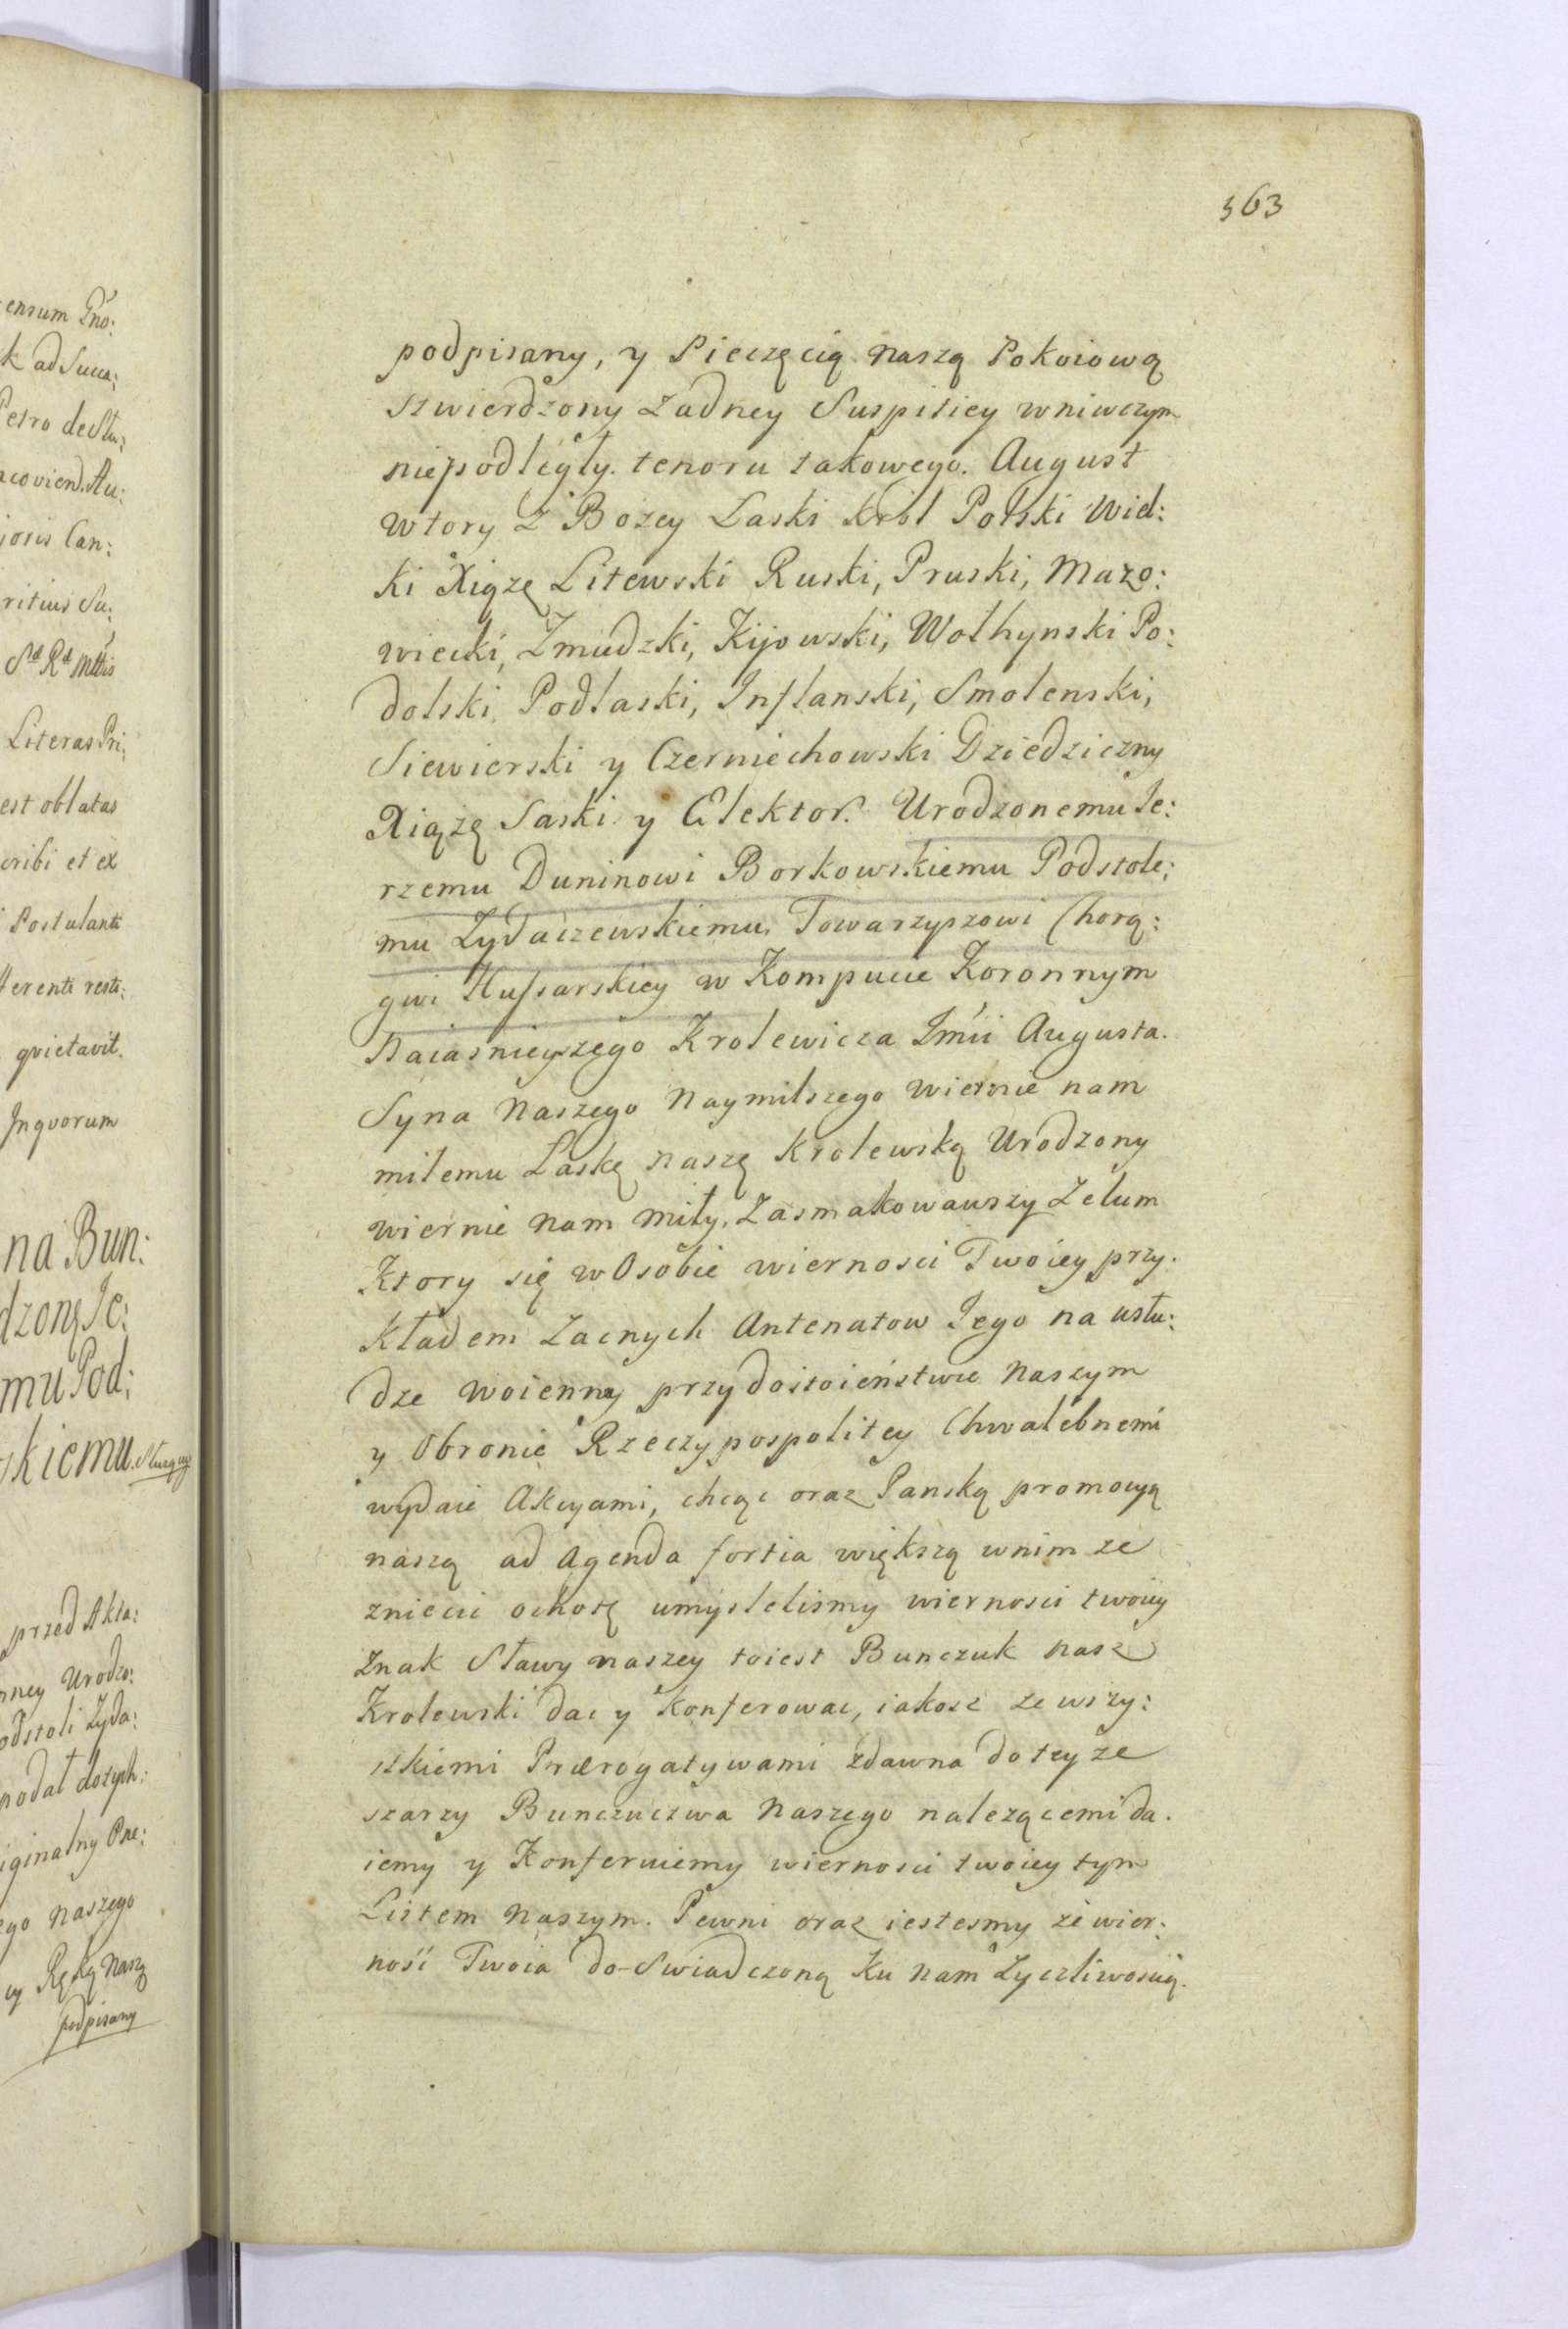 363
podpisany, y Pieczęcią naszą Pokoiową
stwierdzony żadney Suspitiey wniwczym
niepodległy. tenoru takowego. August
wtory z Bożey Laski Krol Polski Wiel:
ki Xiąże Litewski Ruski, Pruski, Mazo:
wiecki, Zmudzki, Kijowski, Wołhynski Po:
dolski, Podlaski, Inflanski, Smolenski,
Siewierski y Czerniechowski Dziedziczny
Xiążę Saski y Elektor. Urodzonemu Je:
rzemu Duninowi Borkowskiemu Podstole:
mu Zydaczewskiemu, Towarzyszowi Chorą:
gwi Hussarskiey w Kompucie Koronnym
Naiasnieyszego Krolewicza Jmći Augusta.
Syna Naszego Naymilszego wiernie nam
miłemu Laskę naszę Krolewską Urodzony
wiernie nam miły, Zasmakowawszy Zelum
Ktory się w Osobie wiernosci Twoiey przy.
kładem Zacnych Antenatow Jego na usłu:
dze woienney przy dostoieństwie Naszym
y Obronie Rzeczypospolitey Chwalebnemi
wydaie Akcyami, chcąc oraz Panską promocyą
naszą ad Agenda fortia większą wnim ze
zniecic ochotę umyslelismy wiernosci twoiey
Znak Sławy naszey toiest Bunczuk nasz
Krolewski dac y Konferowac, iakosz ze wszy:
stkiemi Prærogatywami zdawna do teyze
szarzy Bunczuczwa Naszego nalezącemi da.
iemy y Konferuiemy wiernosci twoiey tym
Listem Naszym. Pewni oraz iestesmy ze wier:
ność Twoia do-Swiadczoną Ku Nam Zyczliwoscią.
ensum
k ad Succ:
Petro de
joris Can:
ritius Sa:
Literas Pri:
est oblatas
cribi et ex
Postulanti
fferenti resti:
quietavit.
Inquorum
na Bun:
dzoną Je:
mu Pod:
skiemu.
przed Akta:
nney Urodzo:
odstoli Zyda:
podał do tych:
iginalny
ego Naszego
ey Ręką Naszą
podpisany